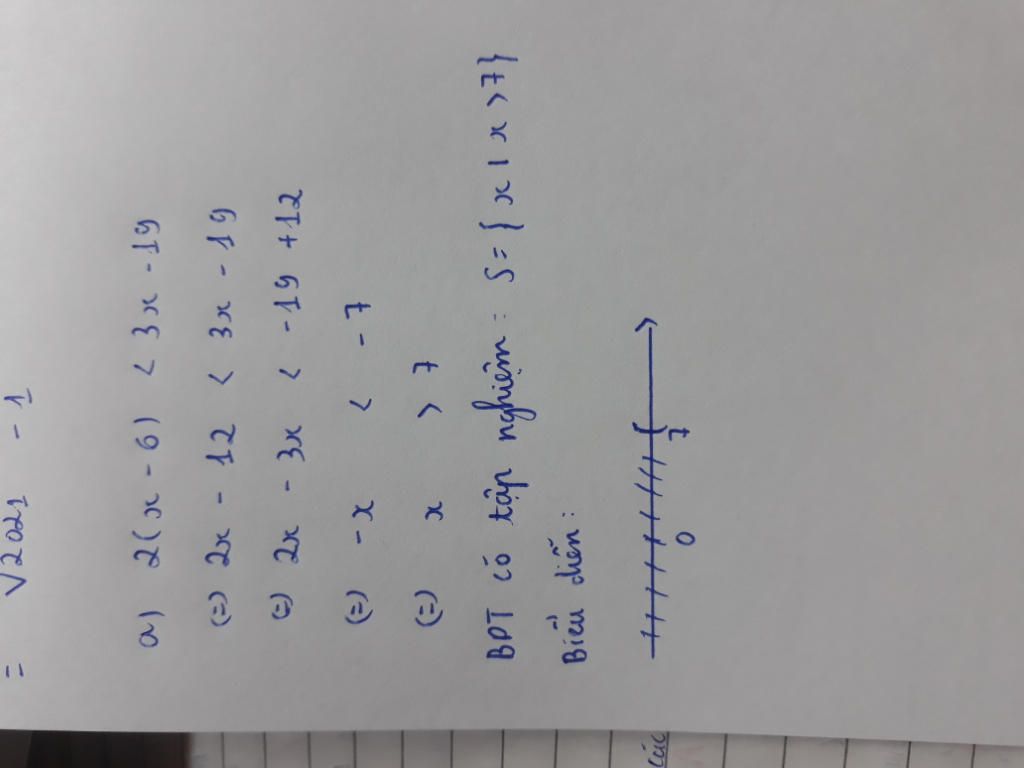 = √2021 - 1
a) 2(x - 6) < 3x - 19
(=) 2x - 12 < 3x - 19
(=) 2x - 3x < -19 + 12
(=) -x < -7
(=) x > 7
BPT có tập nghiệm: S = { x | x > 7}
Biểu diễn:
0 7
các